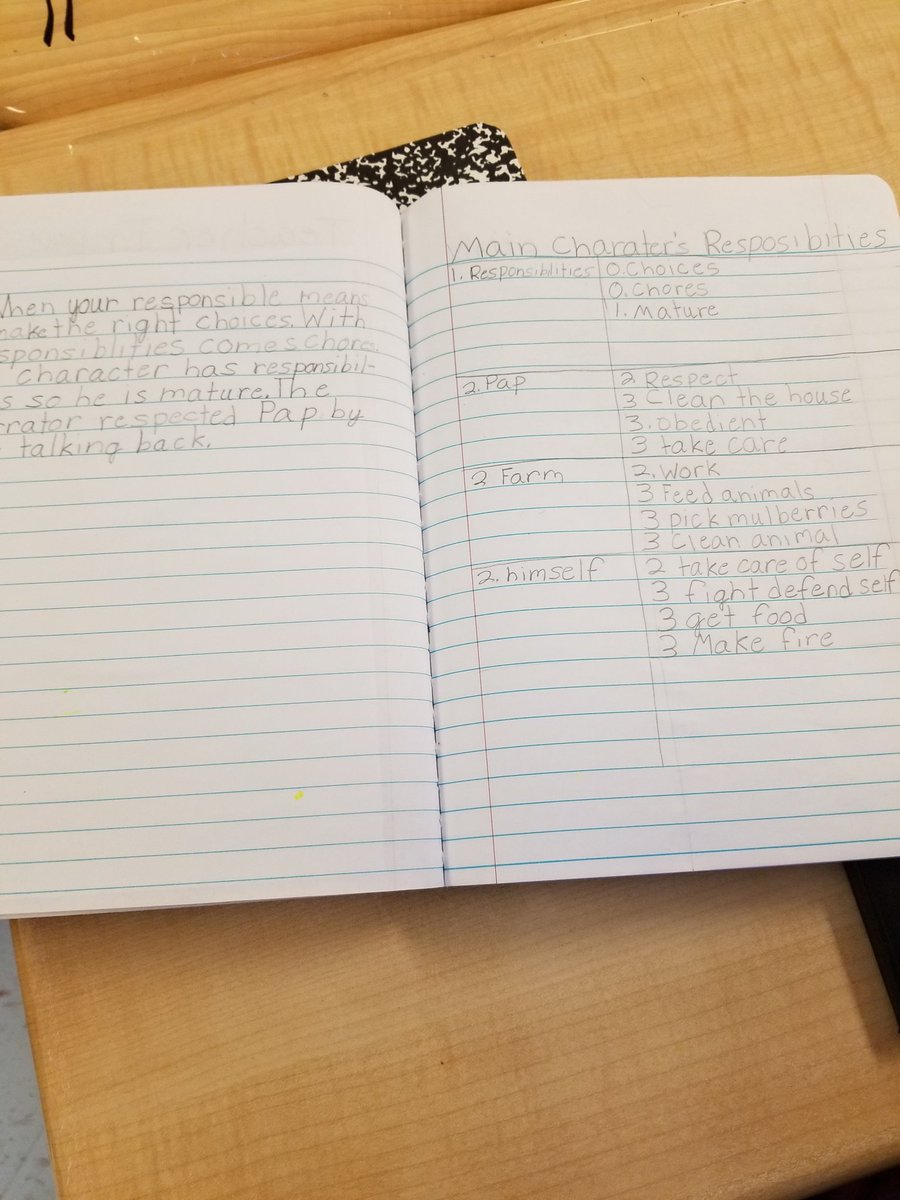 When your responsible means
make the right choices. With
sponsiblities comes chores.
character has responsibil-
s so he is mature. The
rrator respected Pap by
talking back.
Main Charater's Resposibities
1. Responsiblities 0. Choices
0. Chores
1. Mature
2. Pap 2 Respect
3 Clean the house
3. obedient
3 take care
2 Farm 2. Work
3 Feed animals
3 pick mulberries
3 Clean animal
2. himself 2 take care of self
3 fight defend self
3 get food
3 Make fire